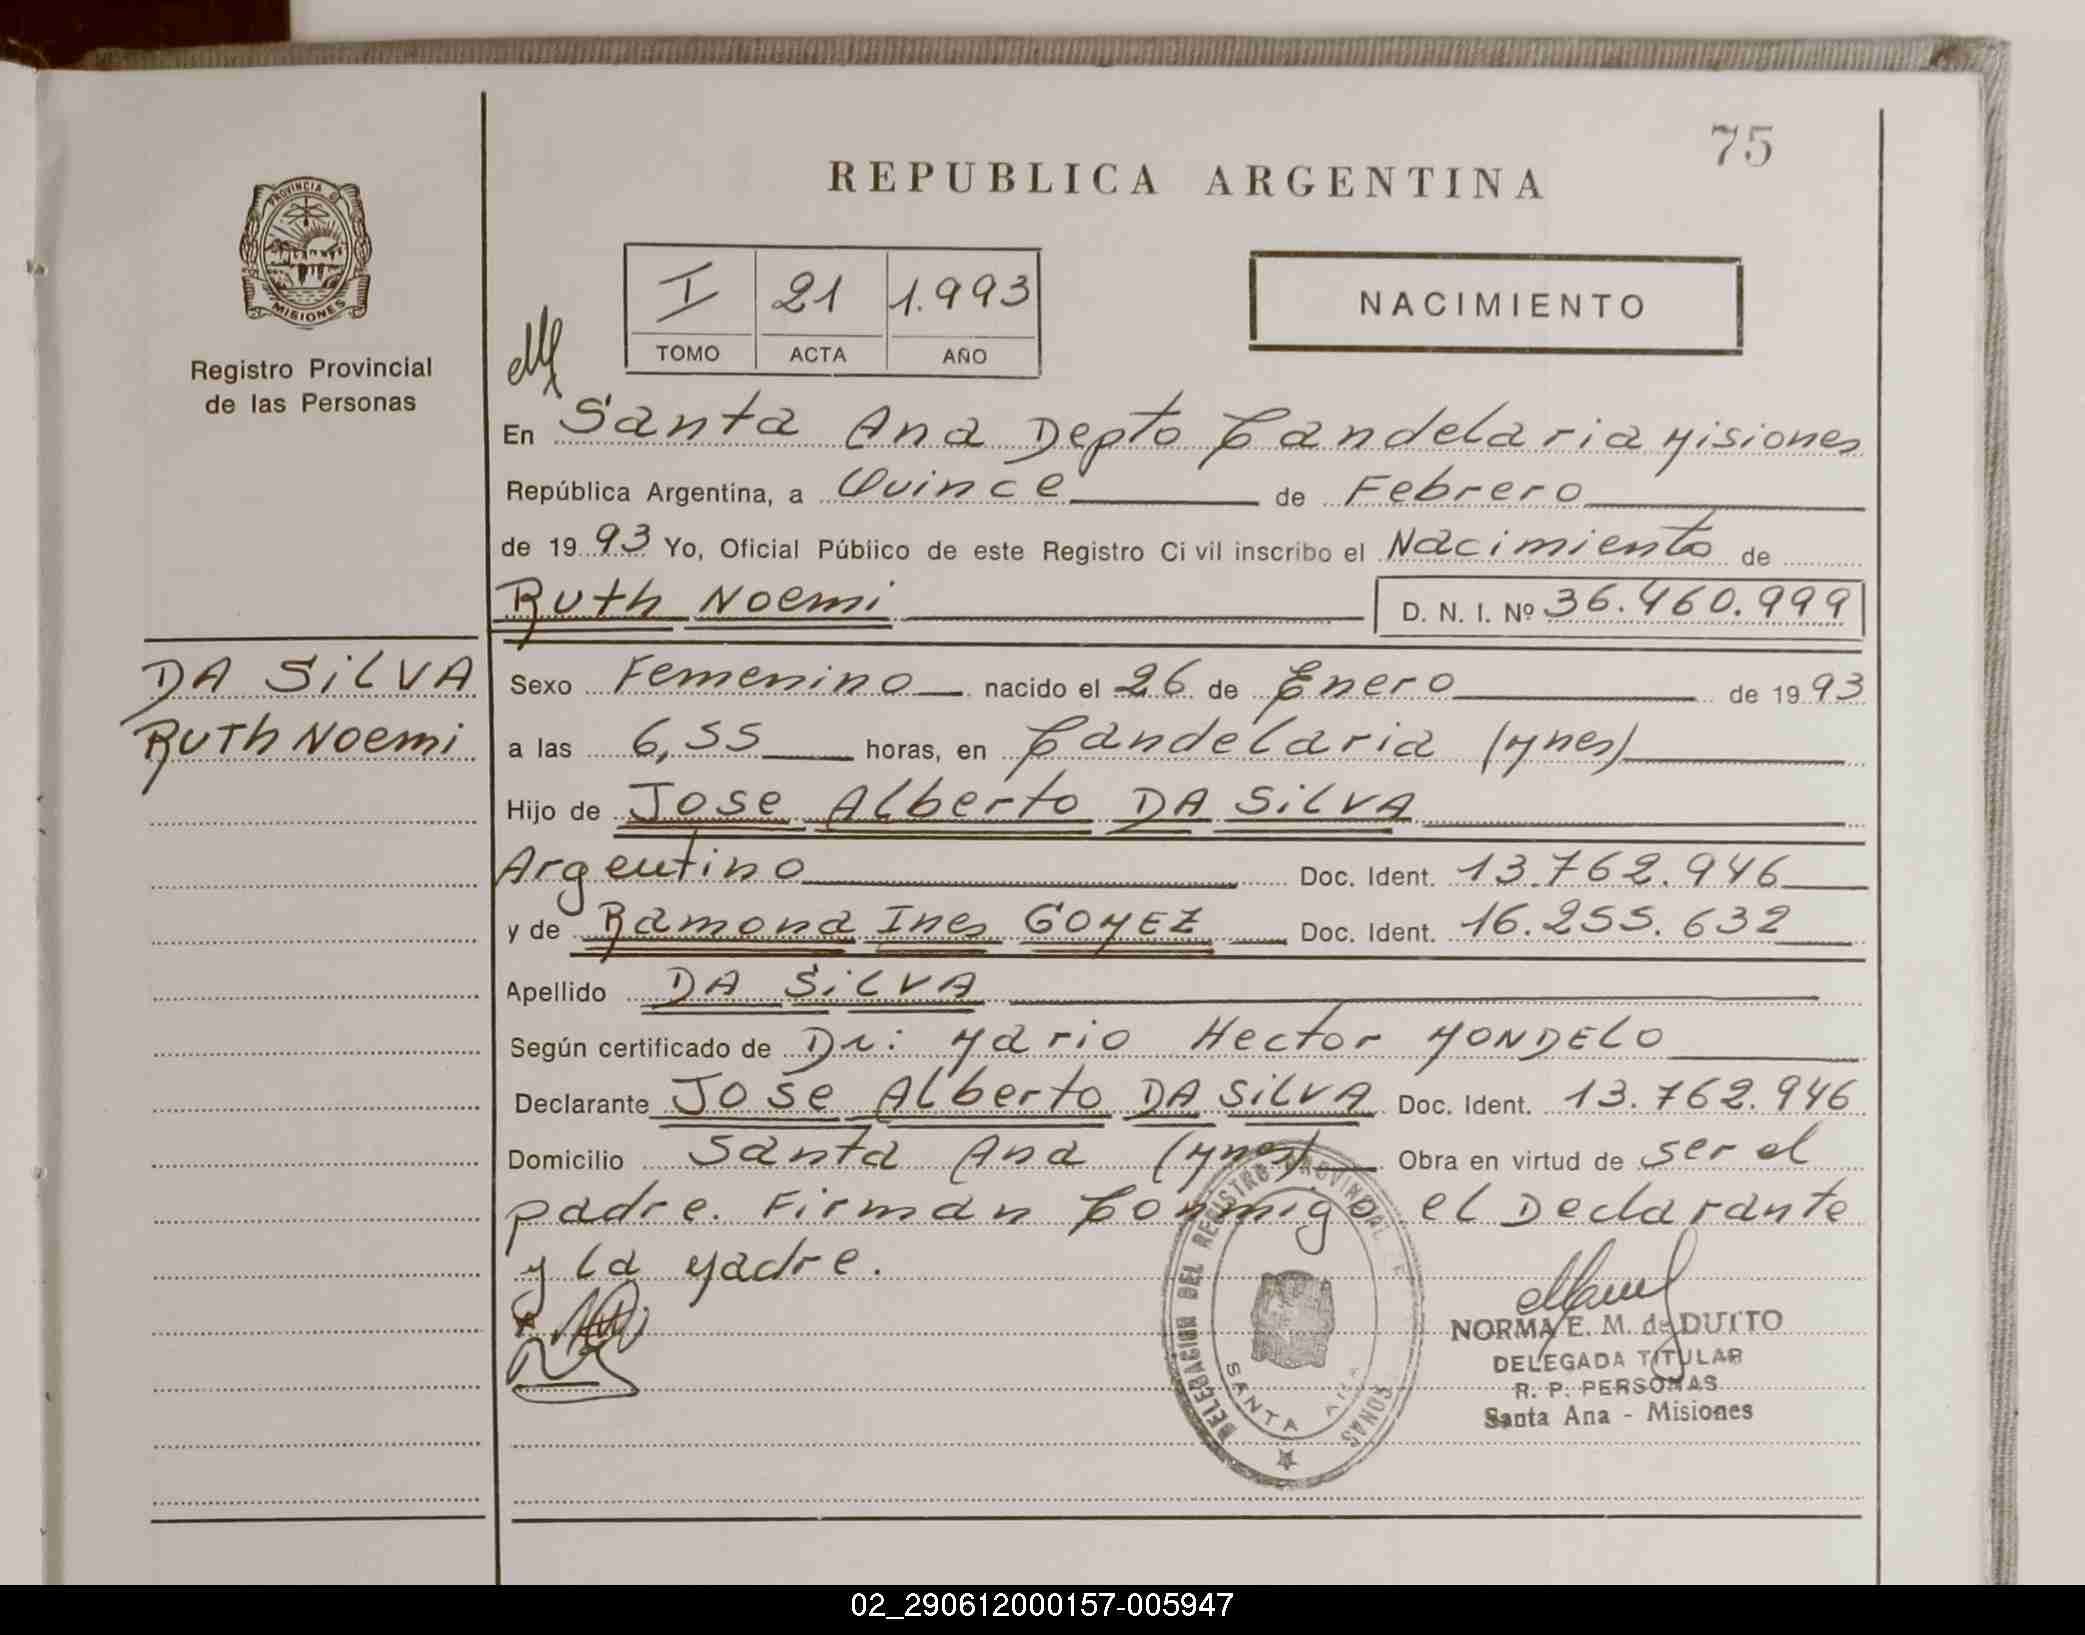 75
REPUBLICA ARGENTINA
PROVINCIA DE
MISIONES
Registro Provincial
de las Personas
I 21 1.993
TOMO ACTA AÑO
NACIMIENTO
En Santa Ana Depto Candelaria Misiones
República Argentina, a Quince de Febrero
de 19 93 Yo, Oficial Público de este Registro Civil inscribo el Nacimiento de
Ruth Noemi D. N. I. Nº 36.460.999
DA SILVA
RUTH NOEMI
Sexo Femenino nacido el 26 de Enero de 19 93
a las 6,55 horas, en Candelaria (Mnes)
Hijo de Jose Alberto DA SILVA
Argentino Doc. Ident. 13.762.946
y de Ramona Ines GOMEZ Doc. Ident. 16.255.632
Apellido DA SILVA
Según certificado de Dr: Mario Hector MONDELO
Declarante Jose Alberto DA SILVA Doc. Ident. 13.762.946
Domicilio Santa Ana (Mnes) Obra en virtud de ser el
padre. Firman Conmigo el Declarante
y la Madre.
DELEGACION DEL REGISTRO PROVINCIAL DE PERSONAS
SANTA ANA
NORMA E. M. de DUTTO
DELEGADA TITULAR
R. P. PERSONAS
Santa Ana - Misiones
02_290612000157-005947